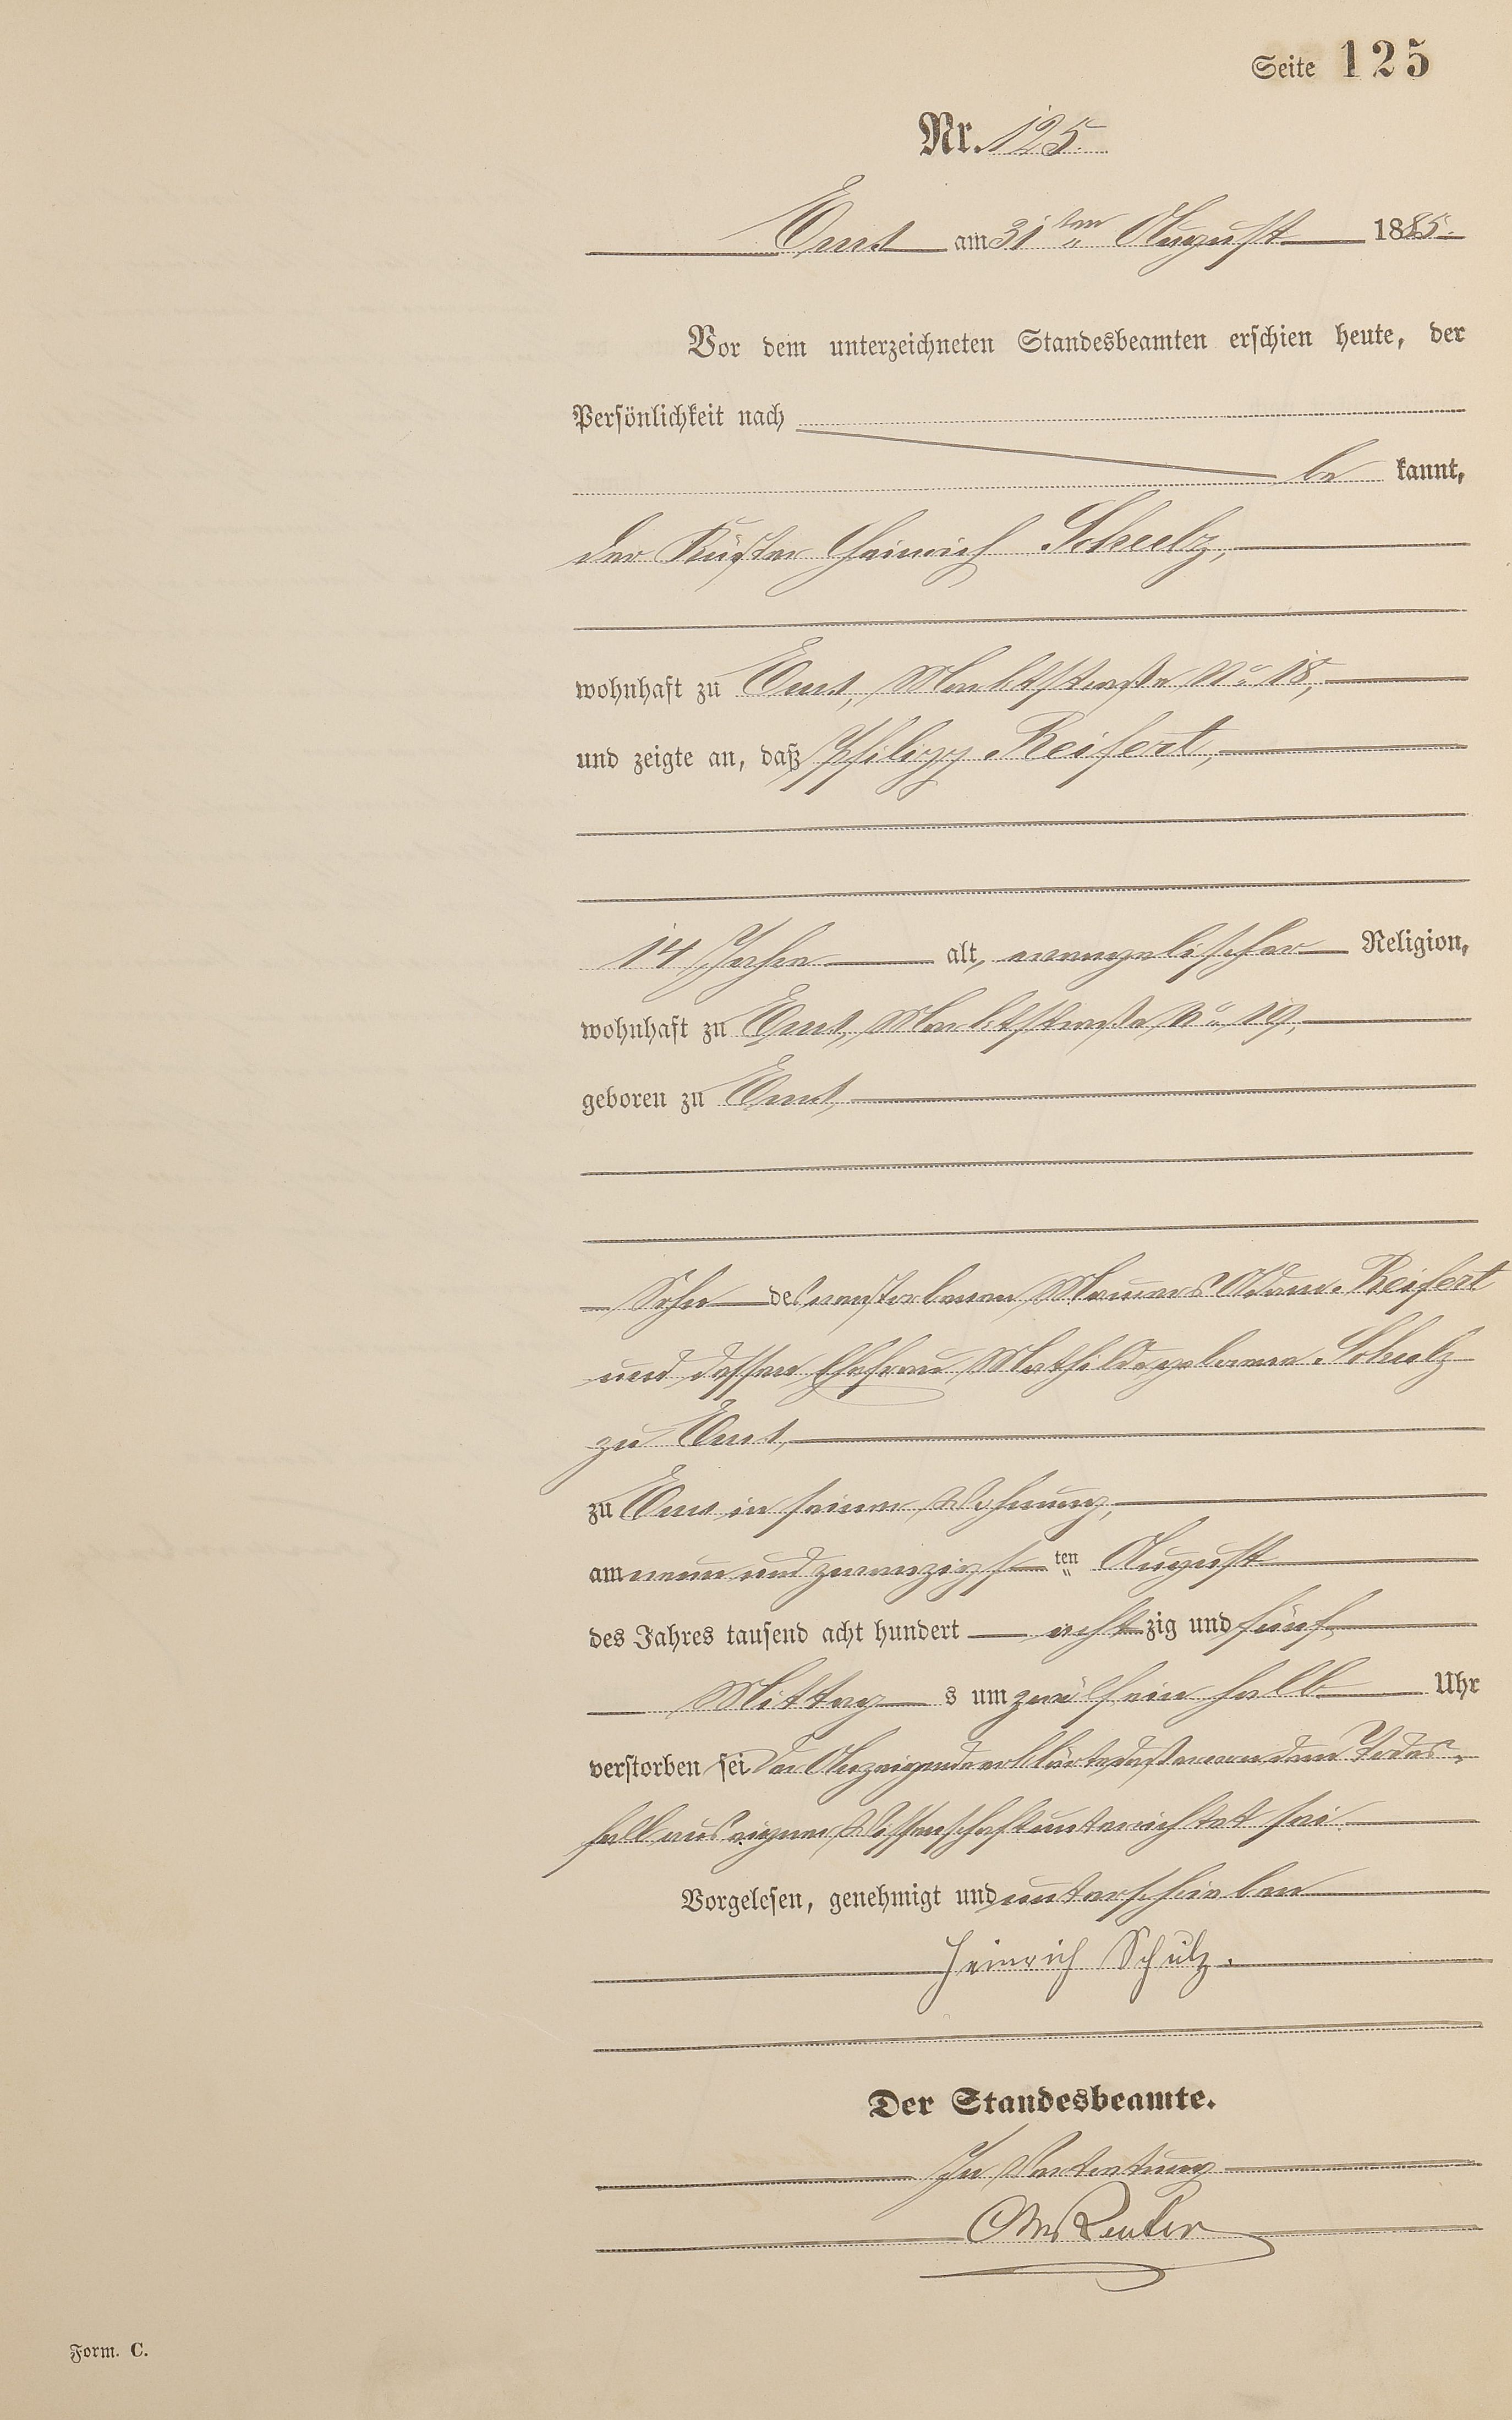 Seite 125
Nr. 125.
Ems am 31ten August 1885.
Vor dem unterzeichneten Standesbeamten erschien heute, der
Persönlichkeit nach
be kannt,
der Küster Heinrich Schulz,
wohnhaft zu Ems, Marktstraße No. 18,
und zeigte an, daß Philipp Reifert,
14 Jahre alt, evangelischer Religion,
wohnhaft zu Ems, Marktstraße No. 19,
geboren zu Ems,
Sohn des verstorbenen Maurers Adam Reifert
und dessen Ehefrau Mathilde geborene Schulz
zu Ems,
zu Ems in seiner Wohnung,
am neun und zwanzigsten August
des Jahres tausend acht hundert achtzig und fünf
Mittags um zwölf ein halb Uhr
verstorben sei. Der Anzeigende erklärte, daß er von dem Todes-
fall aus eigner Wissenschaft unterrichtet sei
Vorgelesen, genehmigt und unterschrieben
Heinrich Schulz.
Der Standesbeamte.
In Vertretung
Reuter
Form. C.